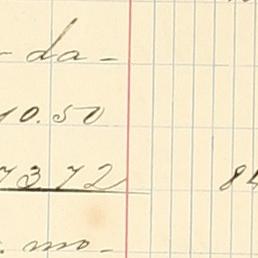 - da -
10.50
7372 84
. mo-